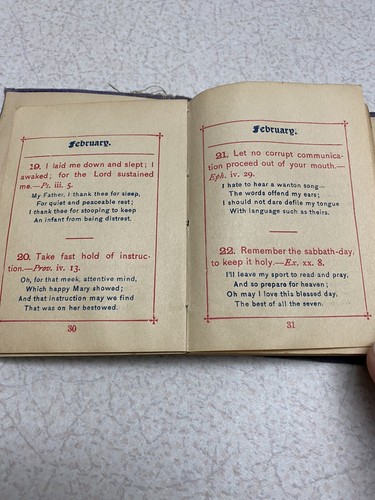 February.
19. I laid me down and slept; I
awaked; for the Lord sustained
me.—Ps. iii. 5.
My Father, I thank thee for sleep,
For quiet and peaceable rest;
I thank thee for stooping to keep
An infant from being distrest.
20. Take fast hold of instruc-
tion.—Prov. iv. 13.
Oh, for that meek, attentive mind,
Which happy Mary showed;
And that instruction may we find
That was on her bestowed.
30
February.
21. Let no corrupt communica-
tion proceed out of your mouth.—
Eph. iv. 29.
I hate to hear a wanton song—
The words offend my ears;
I should not dare defile my tongue
With language such as theirs.
22. Remember the sabbath-day,
to keep it holy.—Ex. xx. 8.
I'll leave my sport to read and pray,
And so prepare for heaven;
Oh may I love this blessed day,
The best of all the seven.
31